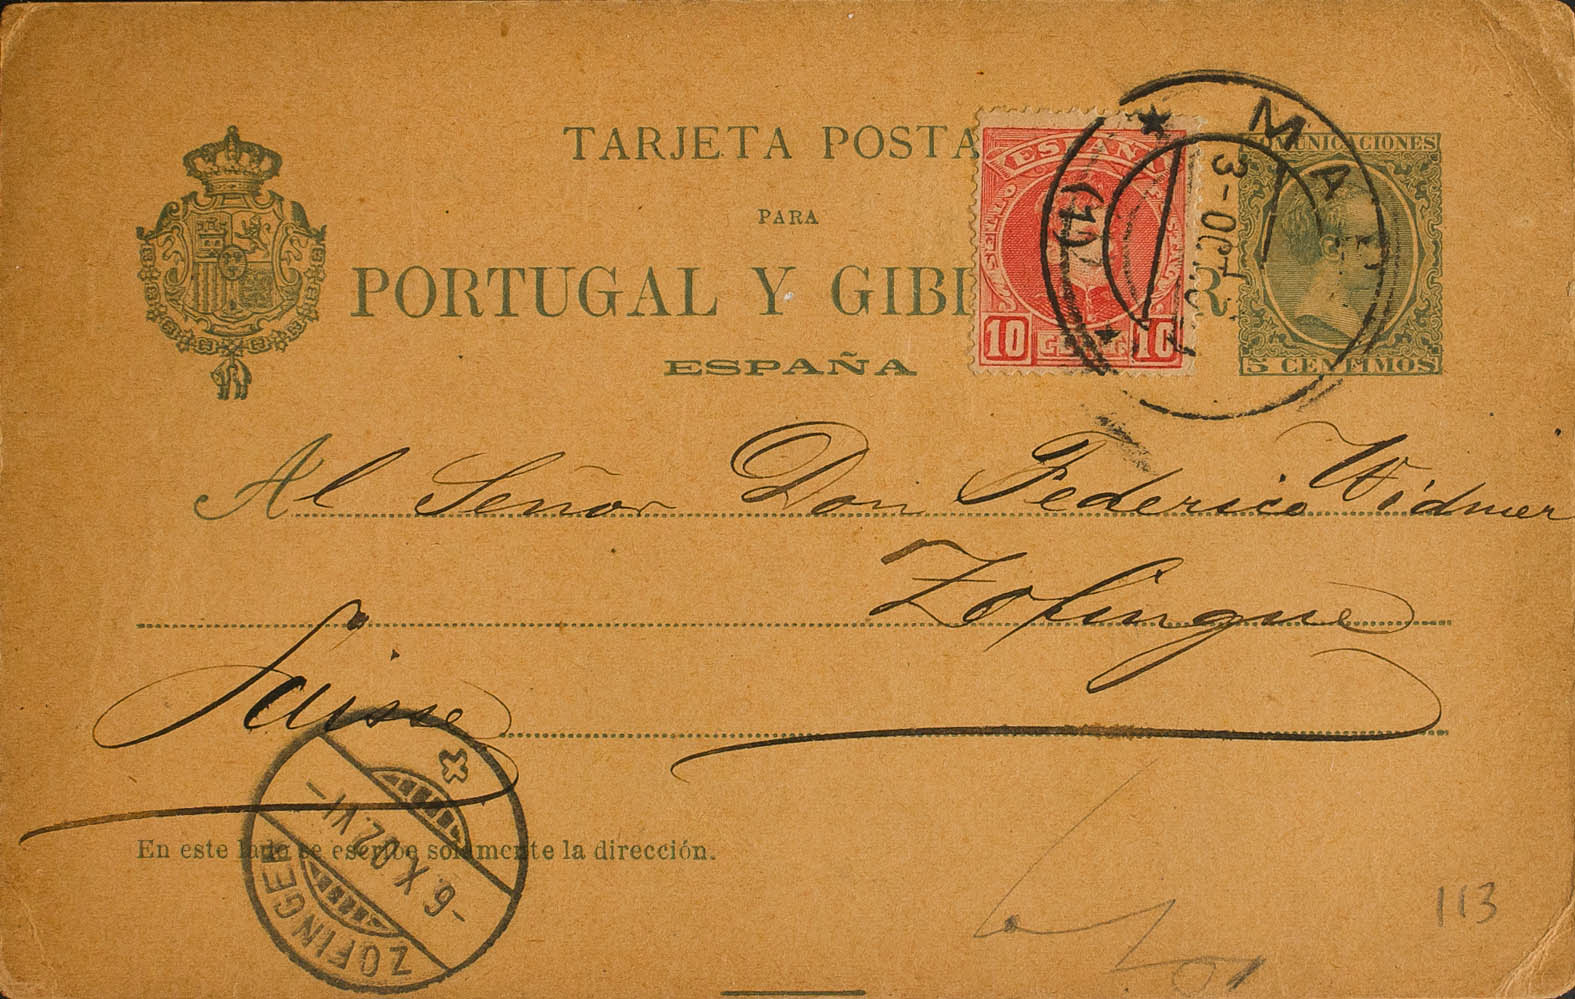 TARJETA POSTA
PARA
PORTUGAL Y GIB R
ESPAÑA
ESPAÑA
10 10
COMUNICACIONES
5 CENTIMOS
3-OCT
Al Señor Don Federico Widmer
Zofingue
Suisse
En este lado se escribe solamente la dirección.
ZOFINGEN
-6.X.02.VI-
113